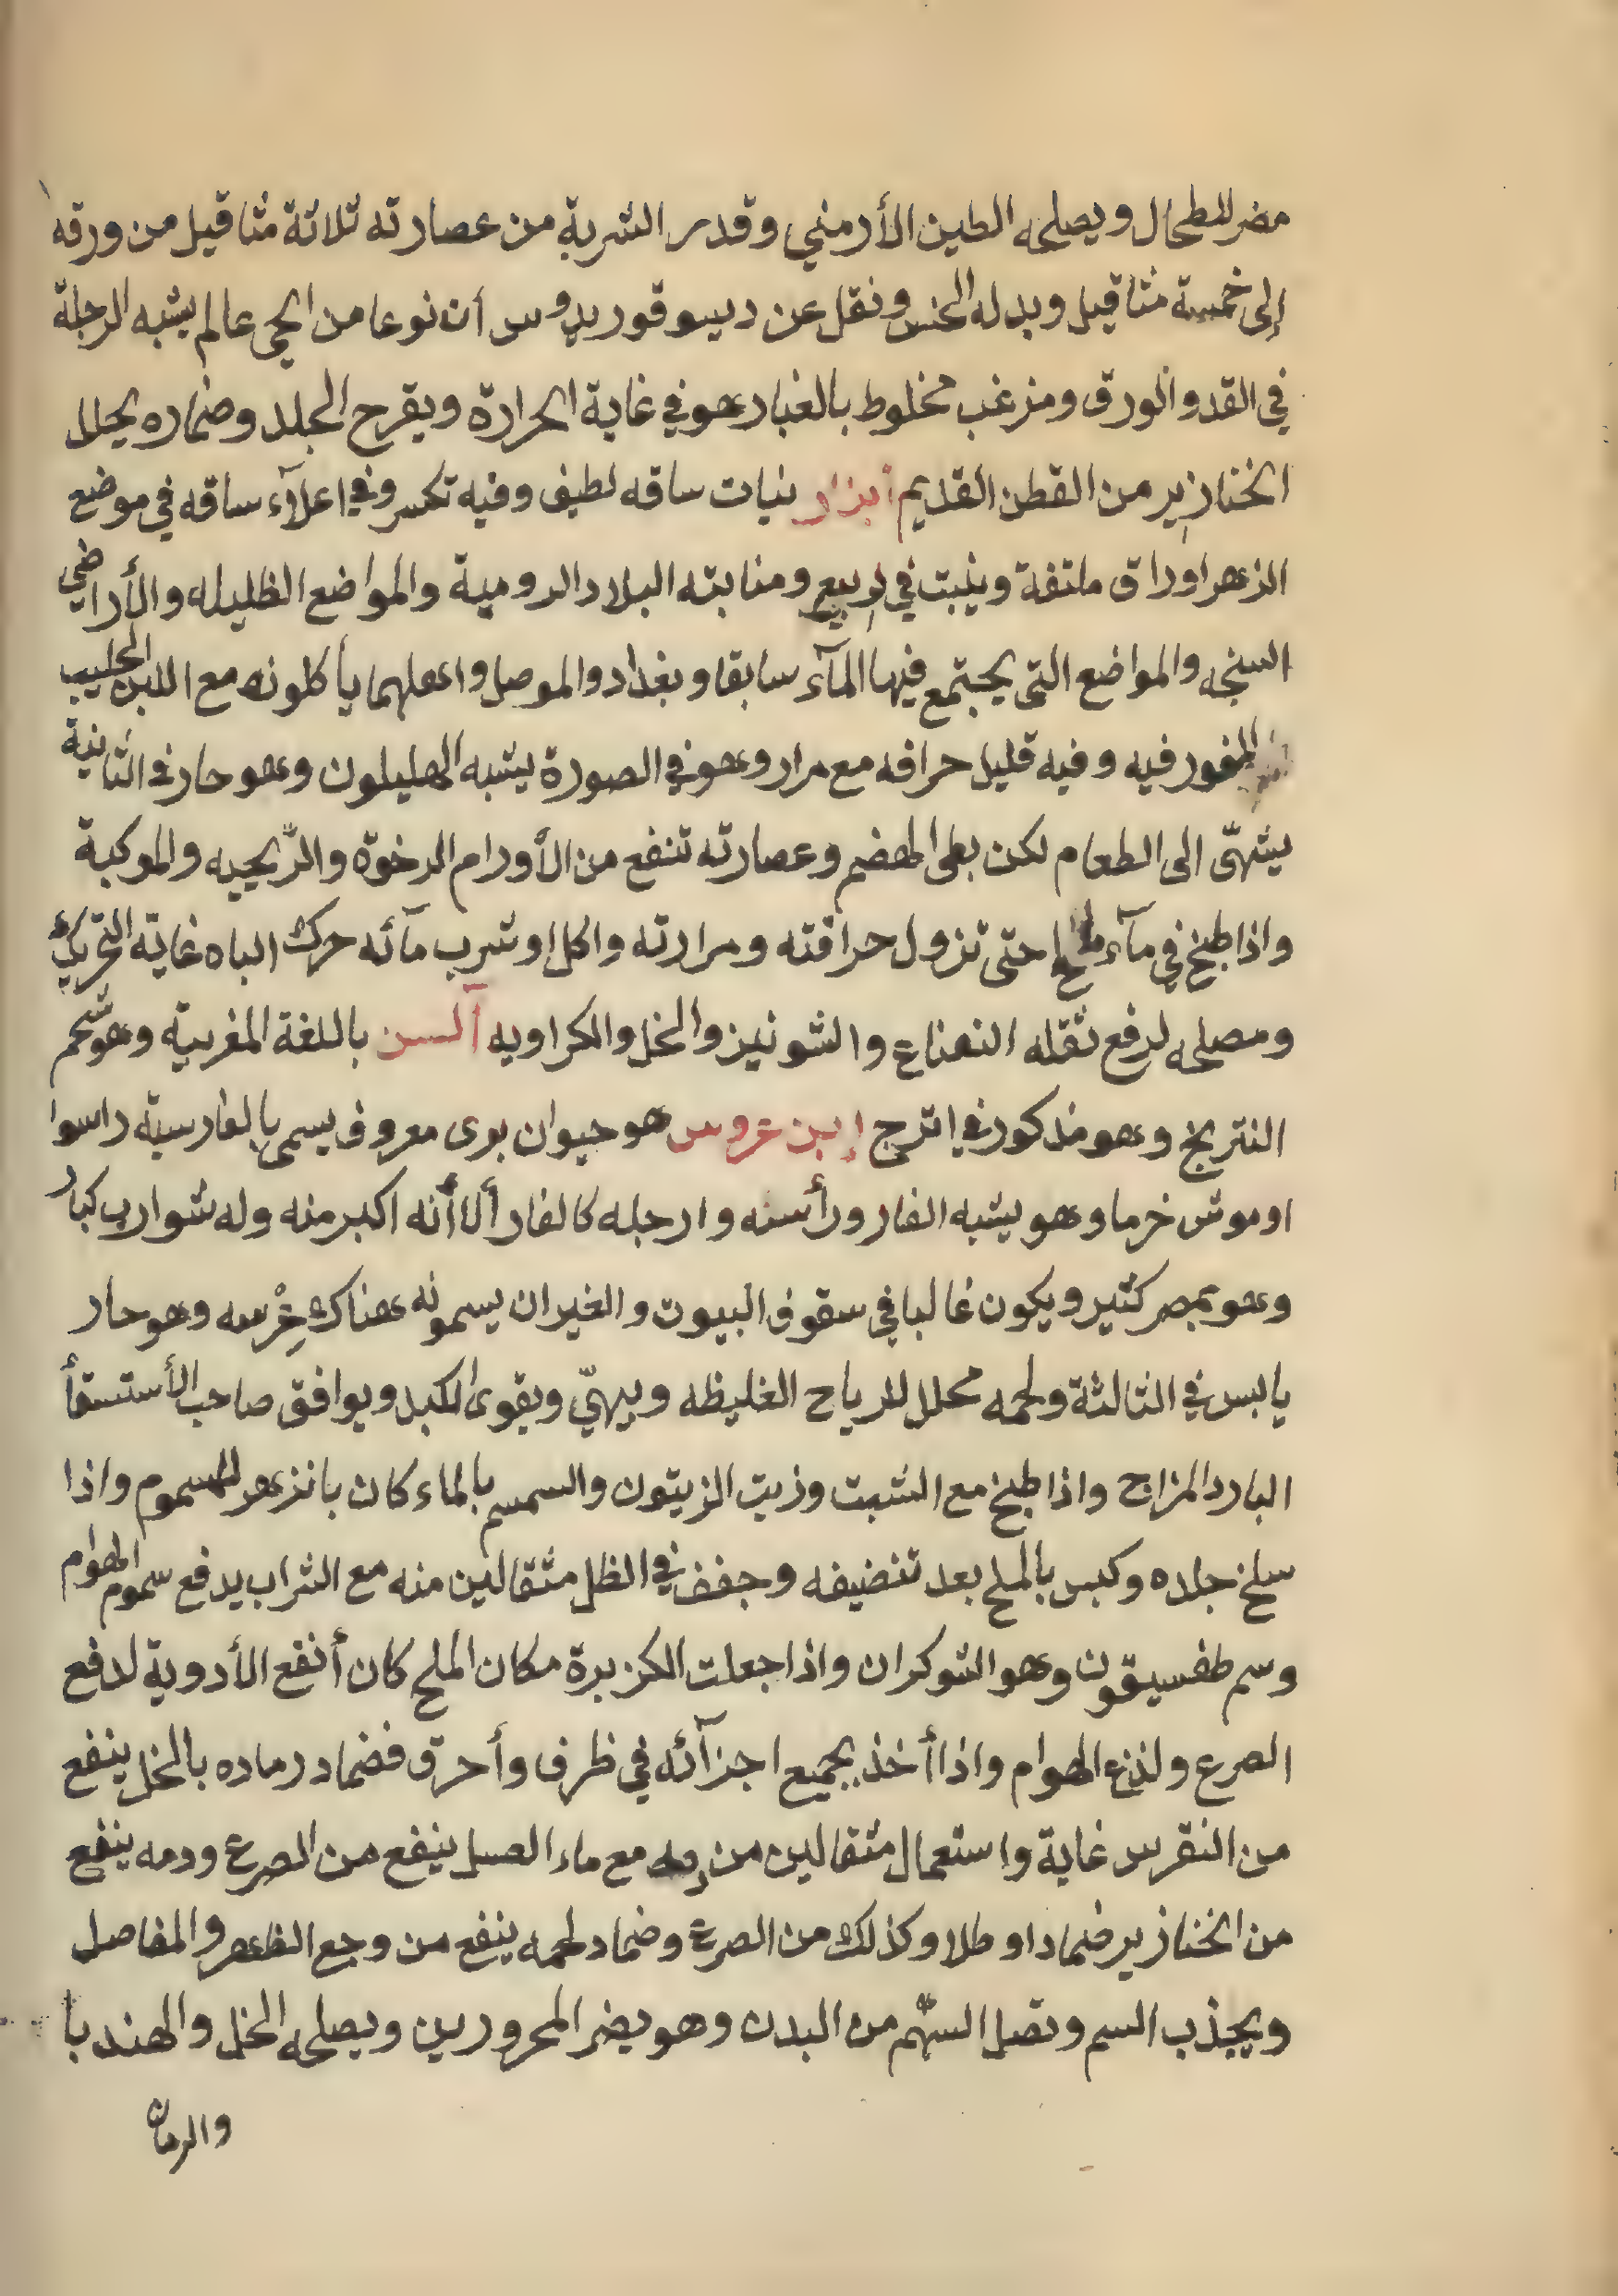 مضر للطحال ويصلحه الطين الأرمني وقدر الشربة من عصارته ثلاثة مثاقيل من ورقه
إلى خمسة مثاقيل وبدله الخس ونقل عن ديسوقوريدوس أن نوعا من الحى عالم يشبه الرجلة
في القد والورق ومزغب مخلوط بالغبار هو في غاية الحرارة ويقرح الجلد وضماره يحلل
الخنازير من القطن القديم أبزار بنيات ساقه لطيف وفيه تكسر وفي اعلآء ساقه في موضع
الزهر اوراق ملتفة وينبت في ربيع ومنابته البلاد الرومية والمواضع الظليله والأراضي
السبخه والمواضع التي يجتمع فيها المآء سابقا وبغداد والموصل واهلهما يأكلونه مع اللبن الحليب
المغور فيه وفيه قليل حرافه مع مرار وهو في الصورة يشبه الهليلون وهو حار في الثانية
يشهّى الى الطعام لكن بطى الهضم وعصارته تنفع من الأورام الرخوة والرّيحيه والمركبة
واذا طبخ في مآء ملح حتى تزول حرافته ومرارته واكل او شرب مآئه حرك الباه غاية التحريك
ومصلحه لرفع ثقله النعناع والشونيز والخل والكراويه آلسن باللغة المغربية وهو شحم
النتريج وهو مذكور في اترج إبن عروس هو حيوان برى معروف يسمى بالفارسية راسوا
اوموش خرما وهو يشبه الفار ورأسنه وارجله كالفار ألا أنه اكبر منه وله شوارب كبار
وهو بمصر كثير ويكون غالبا في سقوف البيوت والغيران يسمونه هناك عِرْسه وهو حار
يابس في الثالثة ولحمه محلل للرياح الغليظه ويبهيّ ويقوى الكبد ويوافق صاحب الأستسقأ
البارد المزاج واذا طبخ مع الشبت وزيت الزيتون والسمسم بالماء كان بانزهر للمسموم واذا
سلخ جلده وكبس بالملح بعد تنضيفه وجفف في الظل مثقالين منه مع الشراب يدفع سموم الهوام
وسم طفسيقون وهو الشوكران واذا جعلت الكزبرة مكان الملح كان أنفع الأدوية لدفع
الصرع ولذع الهوام واذا أخذ بجميع اجزآئه في ظرف وأحرق فضماد رماده بالخل ينفع
من النقرس غاية وإستعمال مثقالين من دمه مع ماء العسل ينفع من الصرع ودمه ينفع
من الخنازير ضمادا وطلا وكذلك من الصرع وضماد لحمه ينفع من وجع الظهر والمفاصل
ويجذب السم ونصل السّهم من البدن وهو يضر المحرورين ويصلحه الخل والهندبا
والرمان